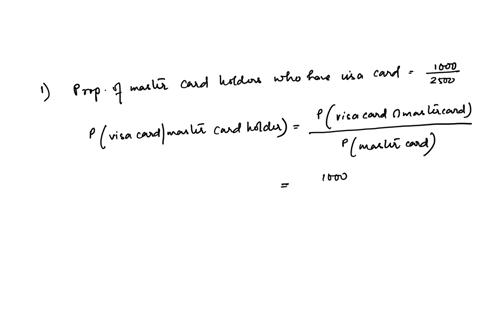 1) Prop. of master card holders who have visa card = 1000/2500
P(visa card|master card holder) = P(visa card ∩ mastercard)/P(master card)
= 1000